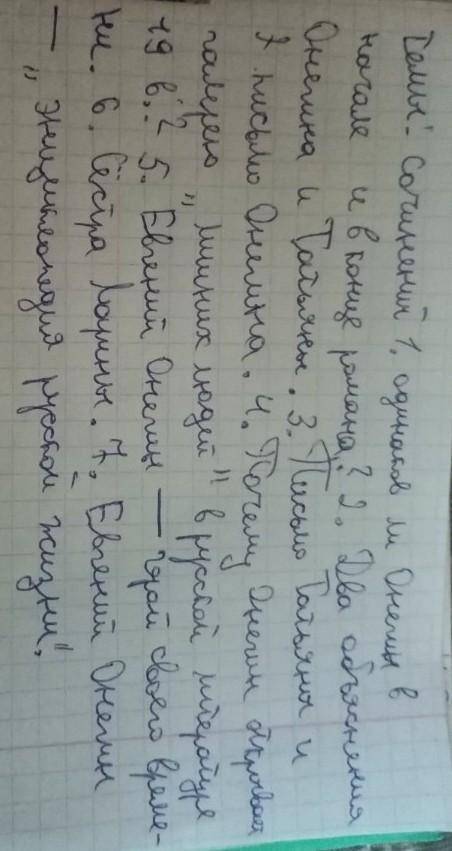 Темы: Сочинений 1. одинаков ли Онегин в
начале и в конце романа? 2. Два объяснения
Онегина и Татьяны. 3. Письмо Татьяны и
письмо Онегина. 4. Почему Онегин открывает
галерею „лишних людей" в русской литературе
19 в.? 5. Евгений Онегин — герой своего време-
ни. 6. Сёстра Ларины. 7. Евгений Онегин
— „энциклопедия русской жизни".